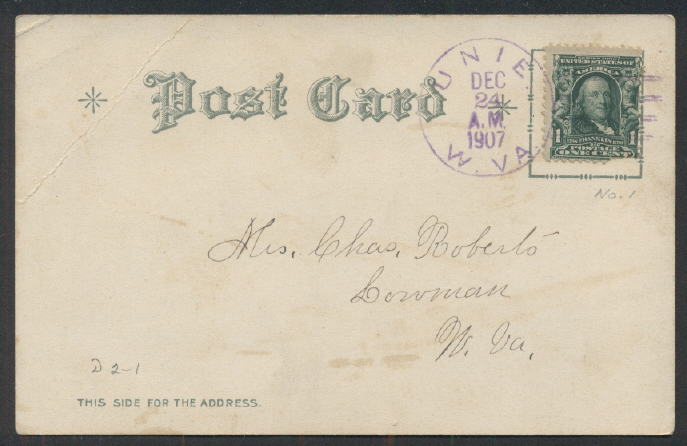 Post Card
UNIE
W. VA.
DEC
24
A.M.
1907
UNITED STATES OF
AMERICA
FRANKLIN
POSTAGE
1 ONE CENT 1
No. 1
Mrs. Chas. Roberts
Lowman
W. Va.
D 2-1
THIS SIDE FOR THE ADDRESS.